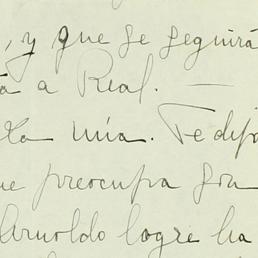 , y que se seguirá
a Real. —
la mía. Te dije
preocupa son
Arnoldo logre ha